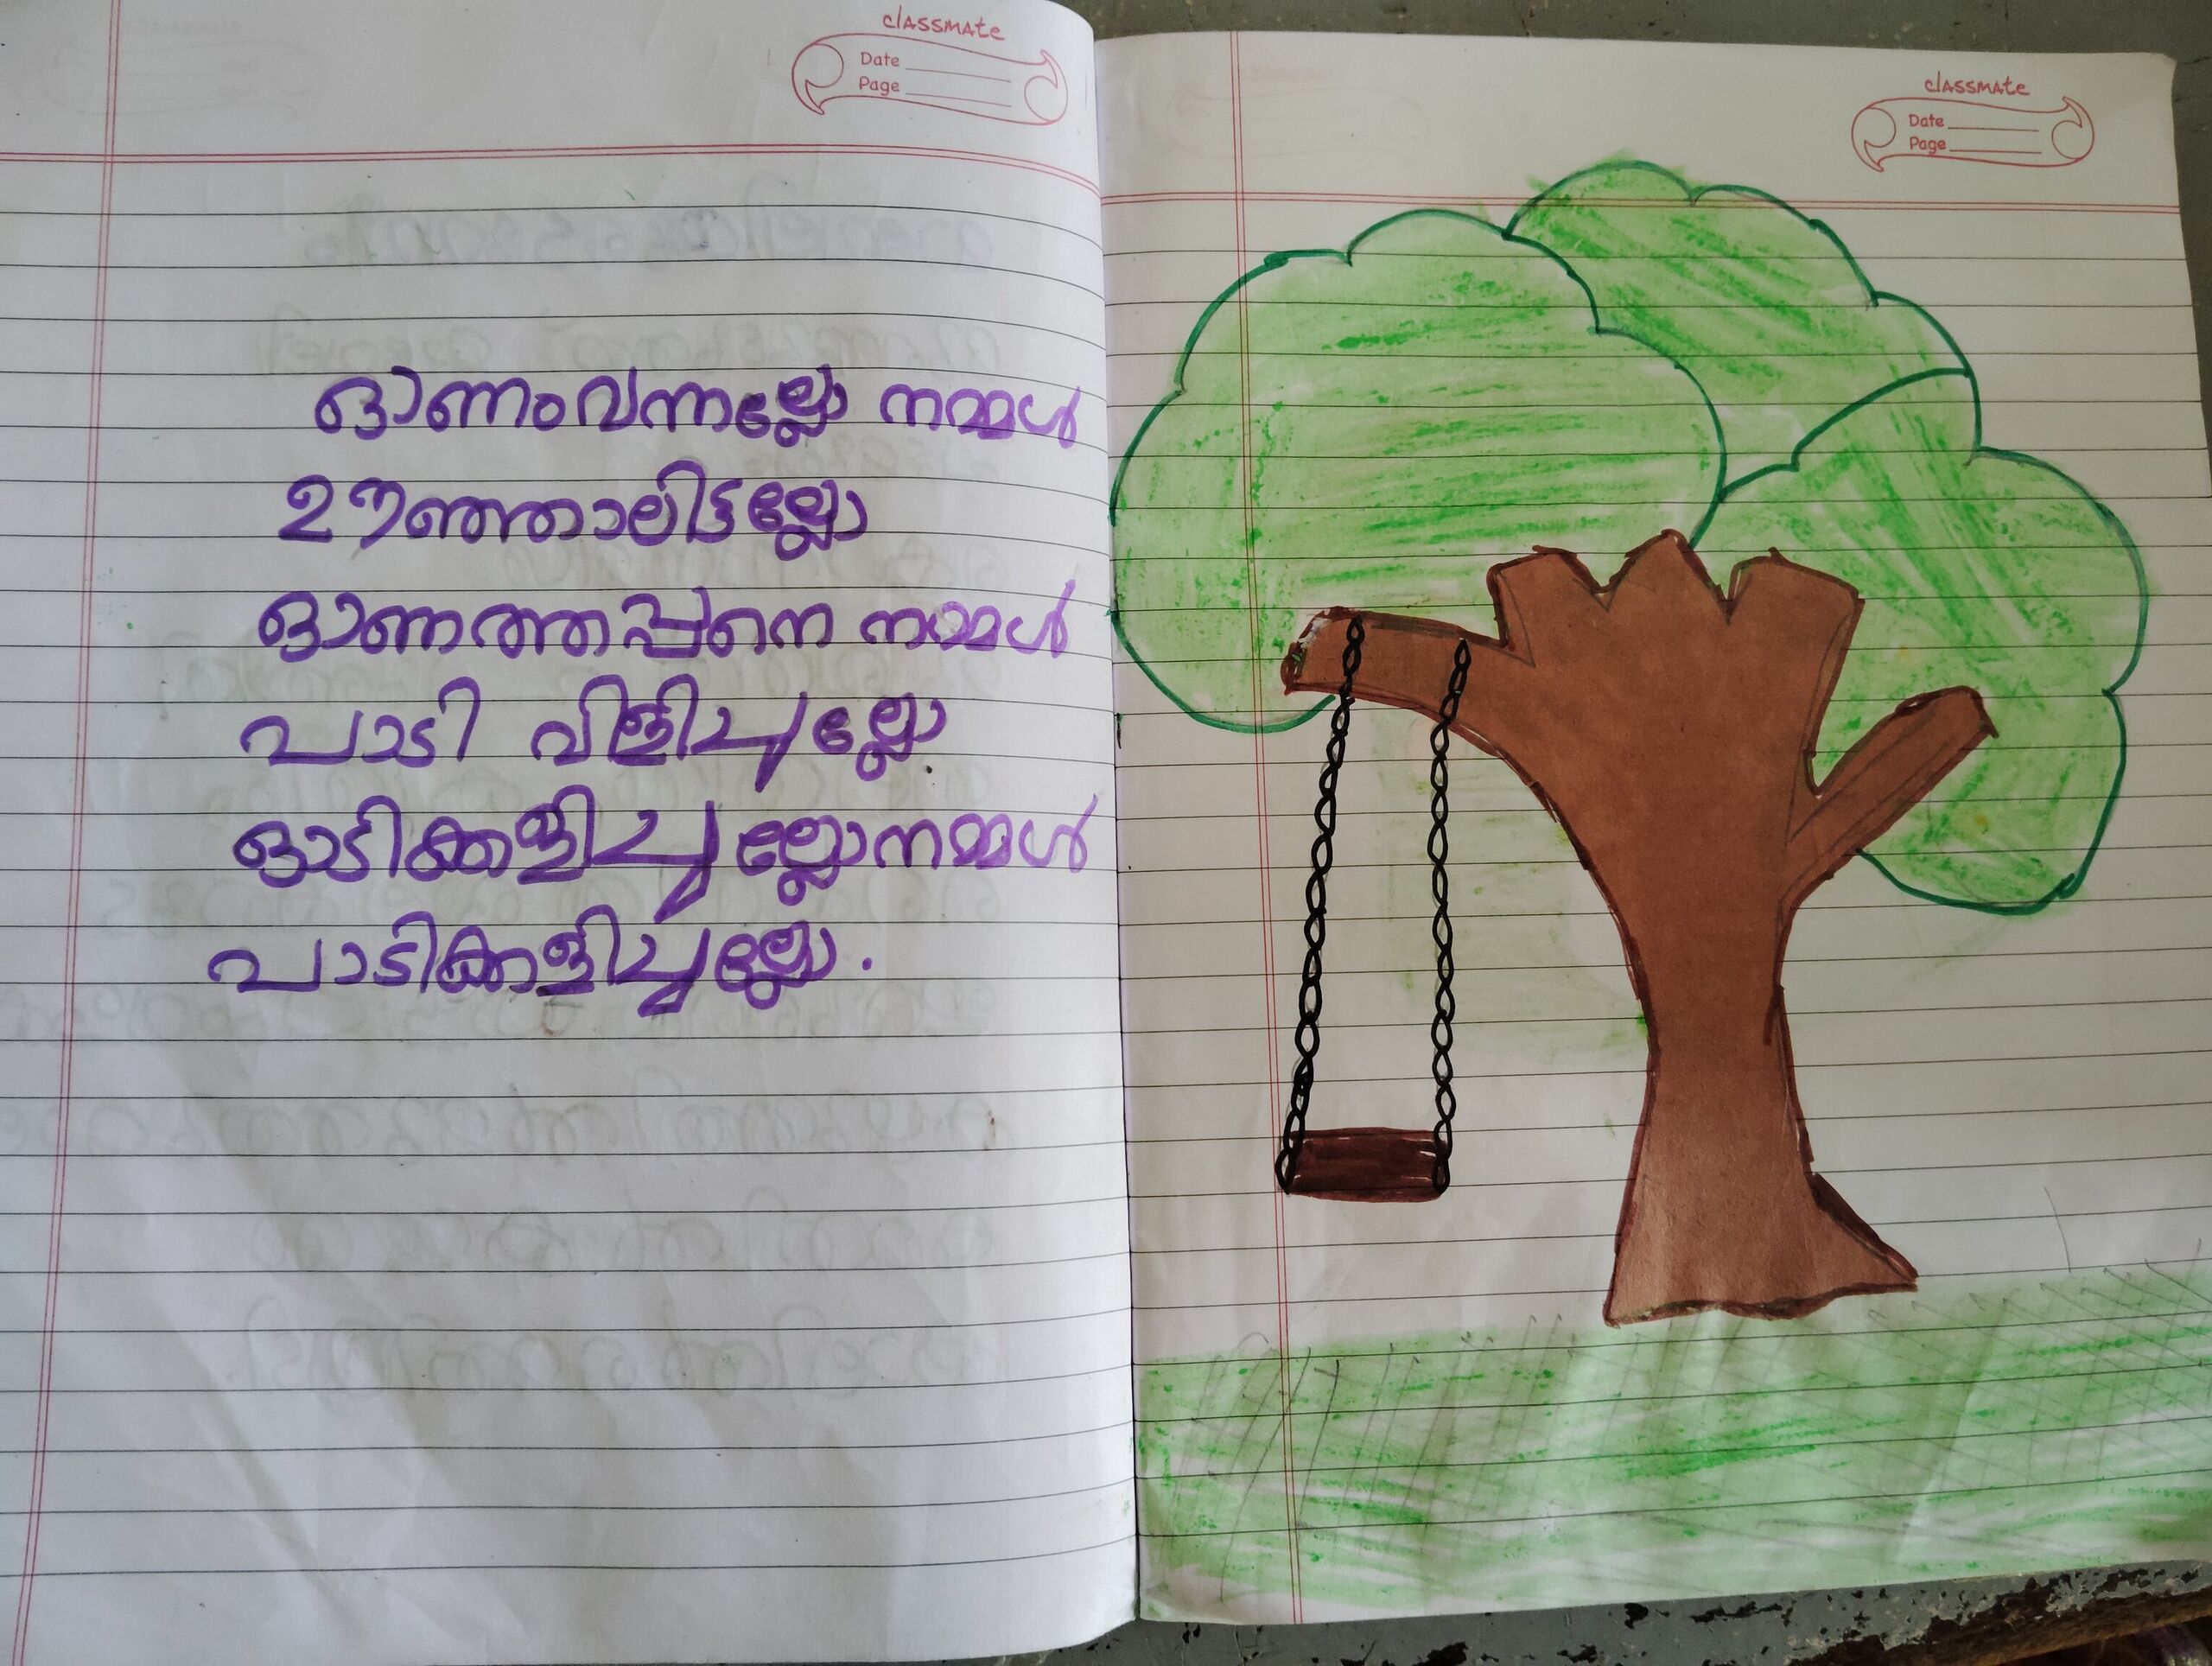 classmate
Date
Page
ഓണംവന്നല്ലോ നമ്മൾ
ഊഞ്ഞാലിട്ടല്ലോ
ഓണത്തപ്പനെ നമ്മൾ
പാടി വിളിച്ചല്ലോ
ഓടിക്കളിച്ചല്ലോനമ്മൾ
പാടിക്കളിച്ചല്ലോ.
classmate
Date
Page